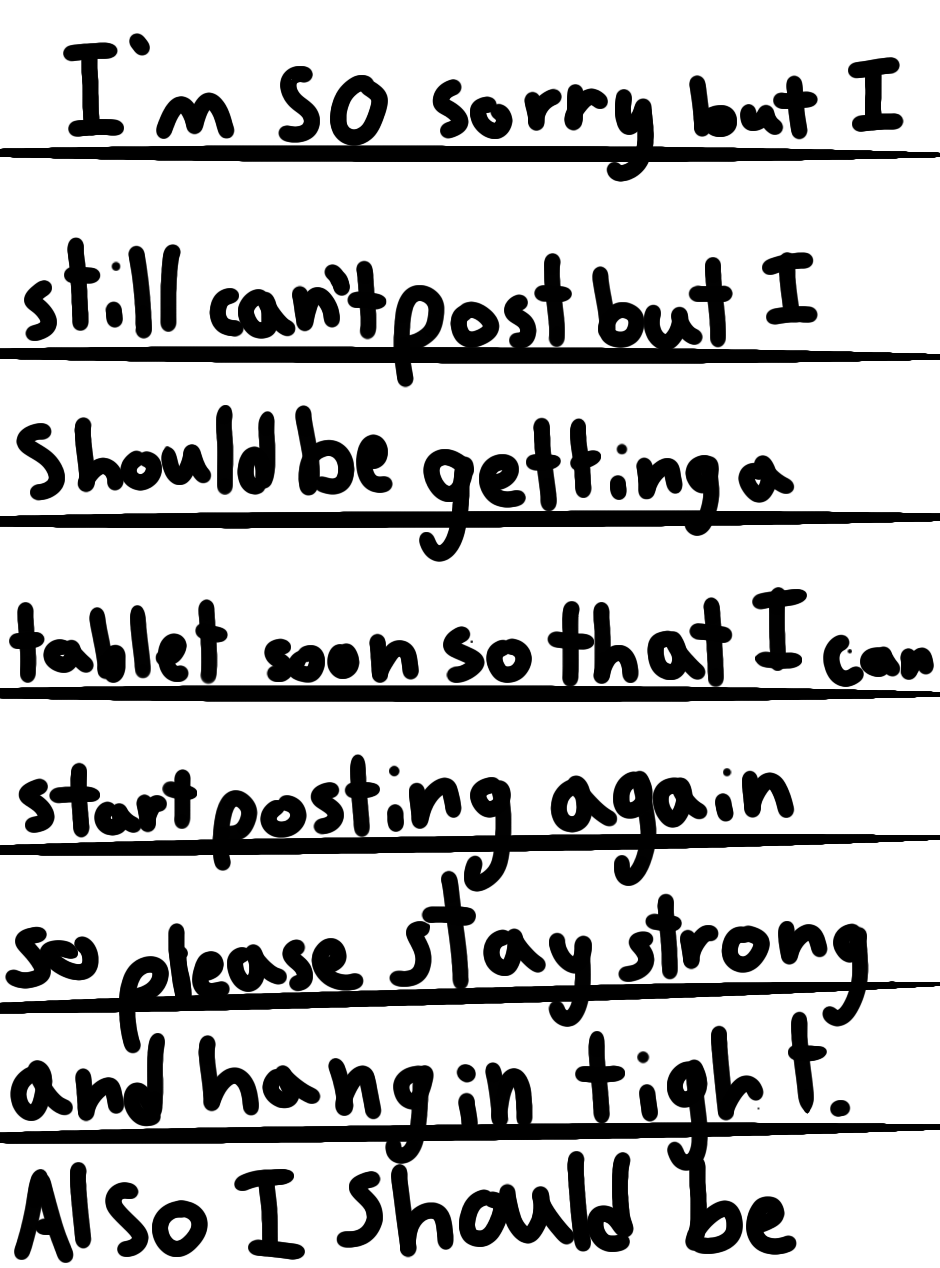 I'm SO sorry but I
still can't post but I
Should be getting a
tablet soon so that I can
start posting again
so please stay strong
and hang in tight.
Also I should be